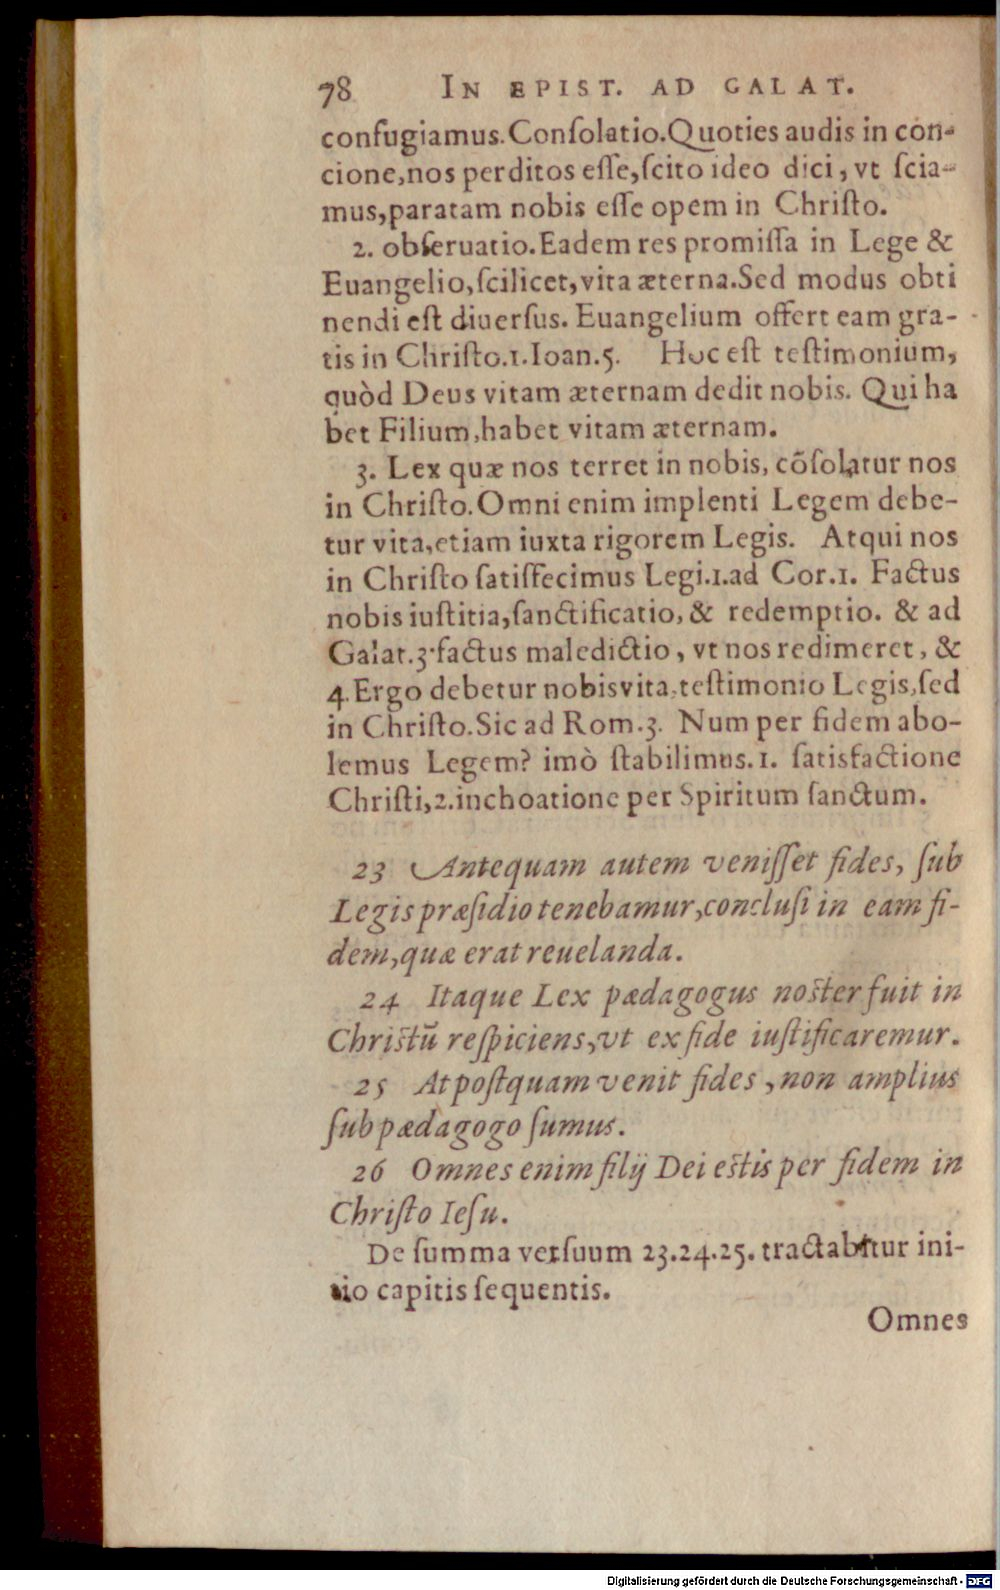 78 IN EPIST. AD GALAT.
confugiamus. Conſolatio. Quoties audis in con-
cione, nos perditos eſſe, ſcito ideo dici, vt ſcia-
mus, paratam nobis eſſe opem in Chriſto.
2. obſeruatio. Eadem res promiſſa in Lege &
Euangelio, ſcilicet, vita æterna. Sed modus obti
nendi eſt diuerſus. Euangelium offert eam gra-
tis in Chriſto. 1. Ioan. 5. Hoc eſt teſtimonium,
quòd Deus vitam æternam dedit nobis. Qui ha
bet Filium, habet vitam æternam.
3. Lex quæ nos terret in nobis, cõſolatur nos
in Chriſto. Omni enim implenti Legem debe-
tur vita, etiam iuxta rigorem Legis. Atqui nos
in Chriſto ſatiſfecimus Legi. 1. ad Cor. 1. Factus
nobis iuſtitia, ſanctificatio, & redemptio. & ad
Galat. 3. factus maledictio, vt nos redimeret, &
4. Ergo debetur nobis vita, teſtimonio Legis, ſed
in Chriſto. Sic ad Rom. 3. Num per fidem abo-
lemus Legem? imò ſtabilimus. 1. ſatisfactione
Chriſti, 2. inchoatione per Spiritum ſanctum.
23 Antequam autem veniſſet fides, ſub
Legis præſidio tenebamur, concluſi in eam fi-
dem, quæ erat reuelanda.
24 Itaque Lex pædagogus noſter fuit in
Chriſtũ reſpiciens, vt ex fide iuſtificaremur.
25 At poſtquam venit fides, non amplius
ſub pædagogo ſumus.
26 Omnes enim filij Dei eſtis per fidem in
Chriſto Ieſu.
De ſumma verſuum 23. 24. 25. tractabitur ini-
tio capitis ſequentis.
Omnes
Digitalisierung gefördert durch die Deutsche Forschungsgemeinschaft - DFG